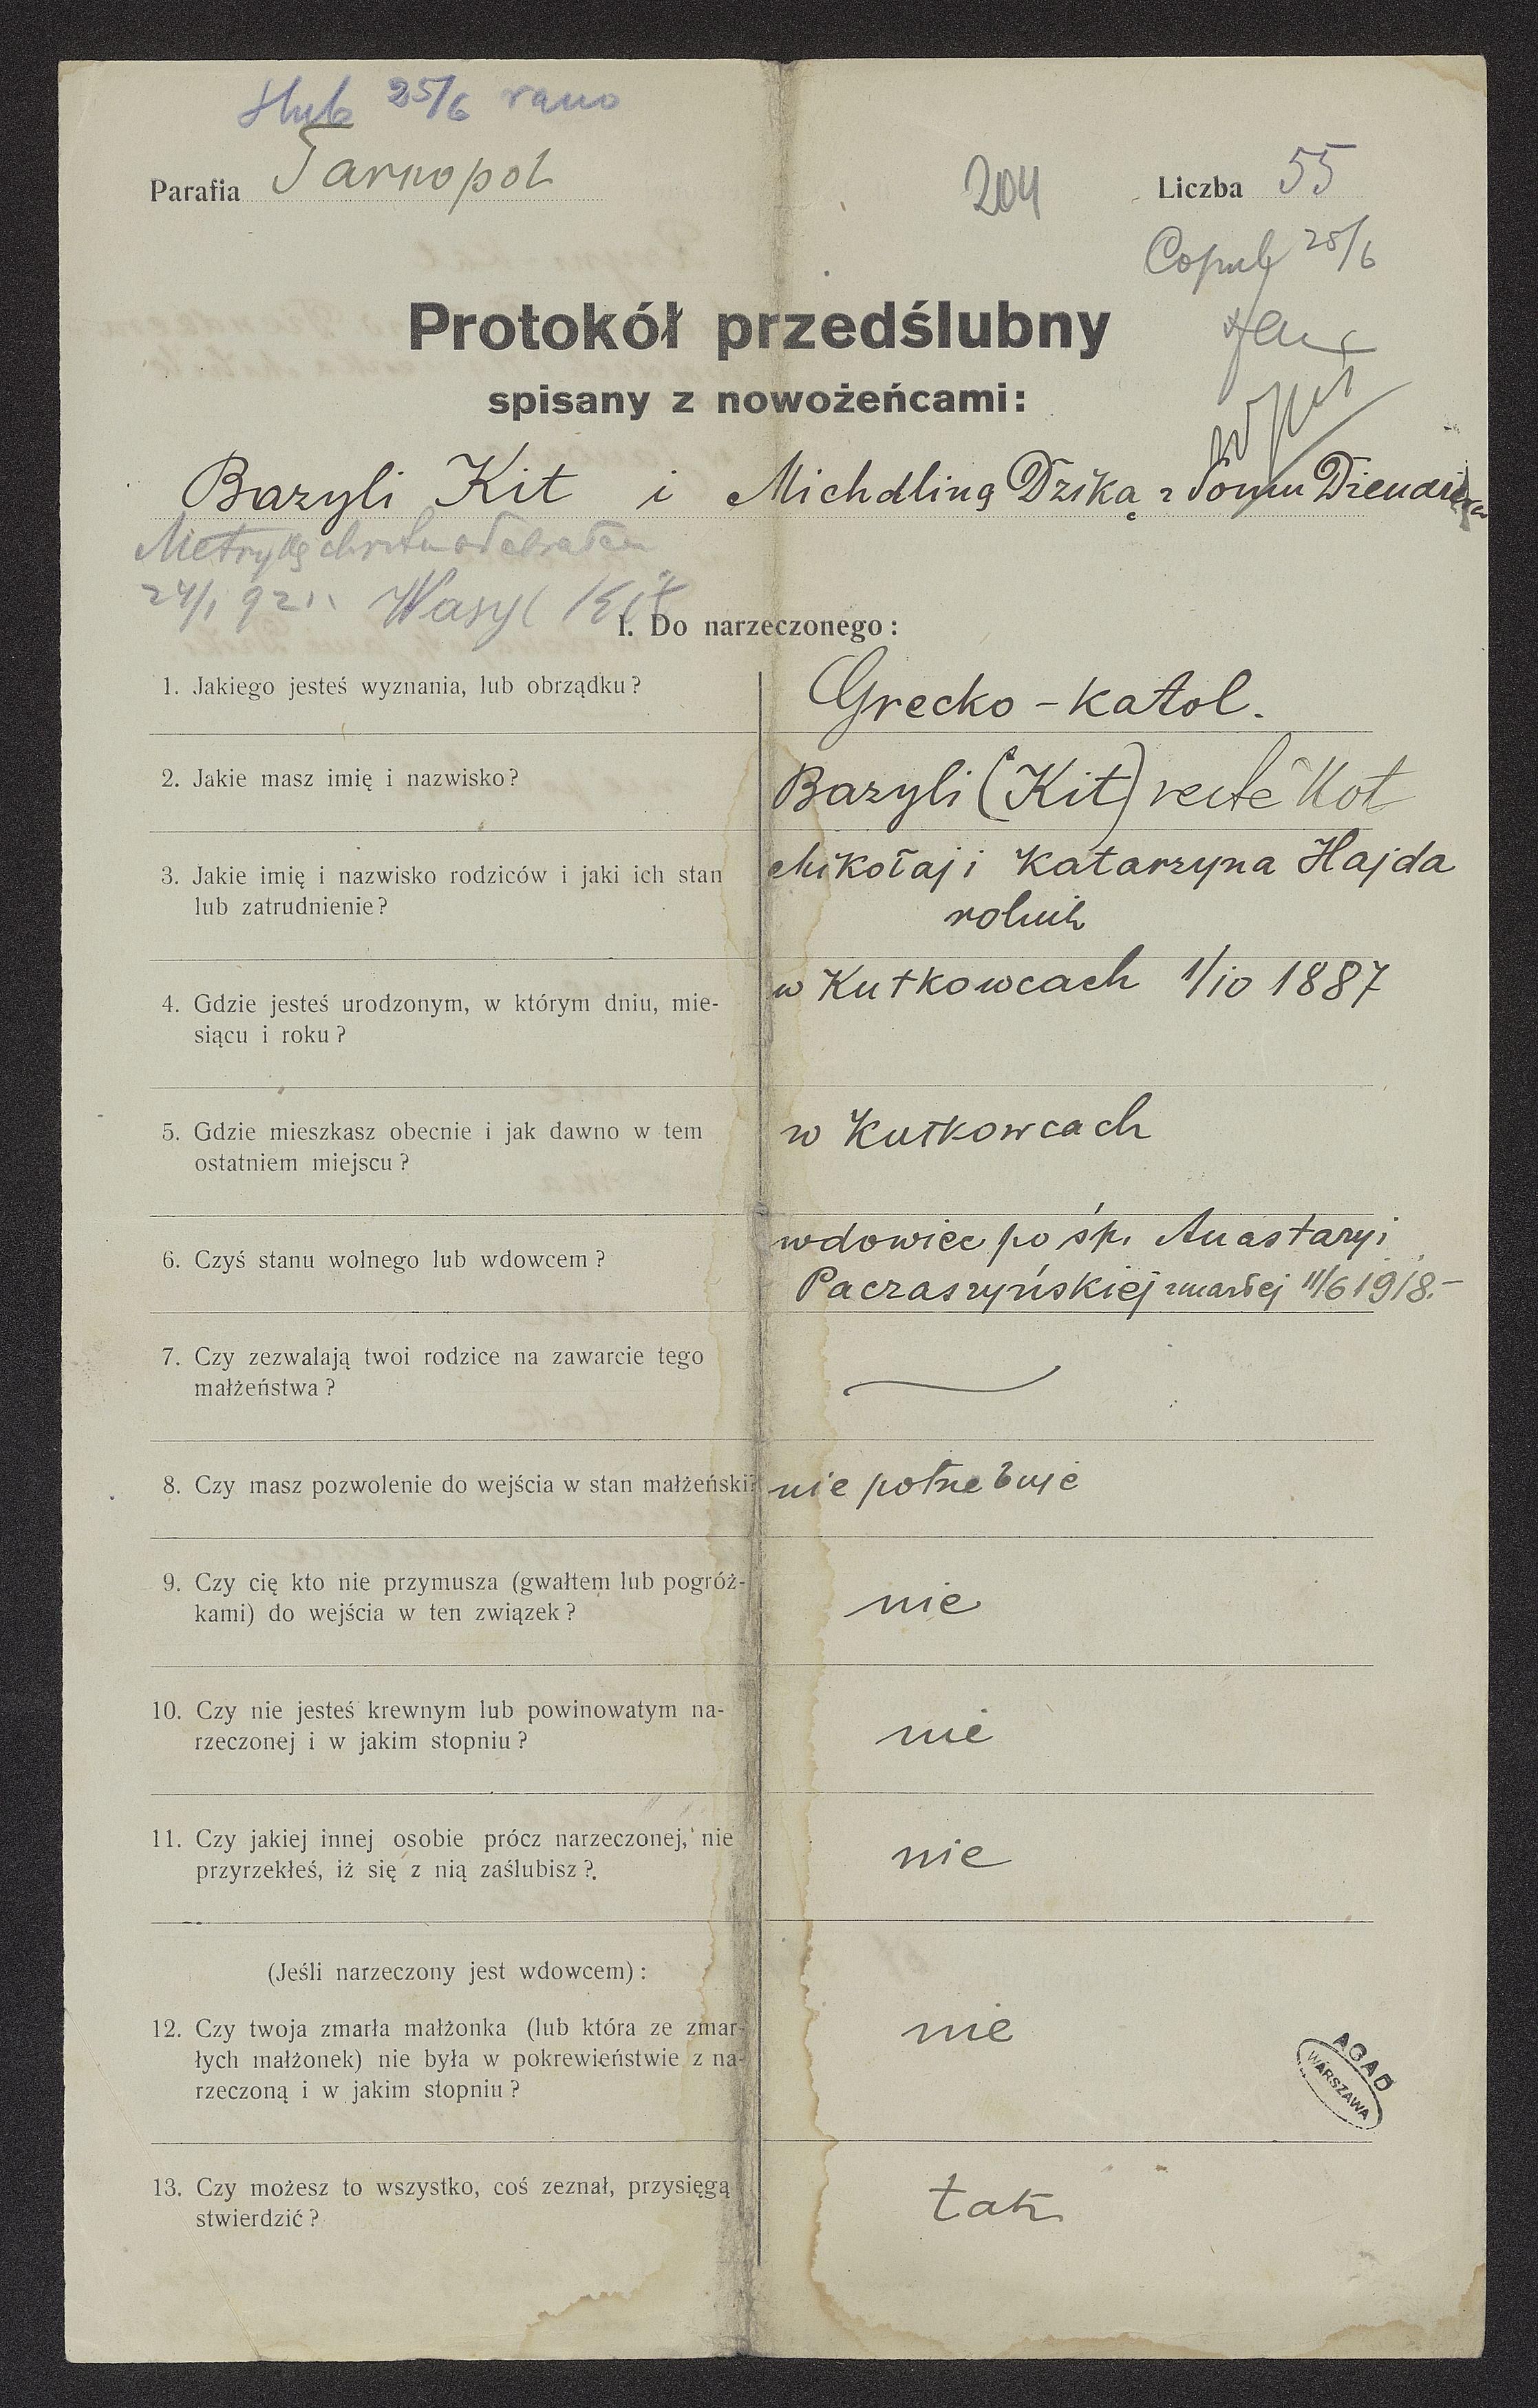 Ślub 25/6 rano
Parafia Tarnopol
204
Liczba 55
Copul 25/6
Protokół przedślubny
spisany z nowożeńcami:
Bazyli Kit i Michaliną Dziką z domu
Metrykę chrztu odebrałem
24/1 921. Wasyl Kit
I. Do narzeczonego:
1. Jakiego jesteś wyznania, lub obrządku?
Grecko-katol.
2. Jakie masz imię i nazwisko?
Bazyli (Kit) recte Kot
3. Jakie imię i nazwisko rodziców i jaki ich stan
lub zatrudnienie?
Mikołaj i Katarzyna Hajda
rolnik
4. Gdzie jesteś urodzonym, w którym dniu, mie-
siącu i roku?
w Kutkowcach 1/10 1887
5. Gdzie mieszkasz obecnie i jak dawno w tem
ostatniem miejscu?
w Kutkowcach
6. Czyś stanu wolnego lub wdowcem?
wdowiec po śp. Anastazyi
Paczaszyńskiej zmarłej 11/6 1918.-
7. Czy zezwalają twoi rodzice na zawarcie tego
małżeństwa?
8. Czy masz pozwolenie do wejścia w stan małżeński?
nie potrzebuje
9. Czy cię kto nie przymusza (gwałtem lub pogróż-
kami) do wejścia w ten związek?
nie
10. Czy nie jesteś krewnym lub powinowatym na-
rzeczonej i w jakim stopniu?
nie
11. Czy jakiej innej osobie prócz narzeczonej, nie
przyrzekłeś, iż się z nią zaślubisz?
nie
(Jeśli narzeczony jest wdowcem):
12. Czy twoja zmarła małżonka (lub która ze zmar-
łych małżonek) nie była w pokrewieństwie z na-
rzeczoną i w jakim stopniu?
nie
AGAD
WARSZAWA
13. Czy możesz to wszystko, coś zeznał, przysięgą
stwierdzić?
tak